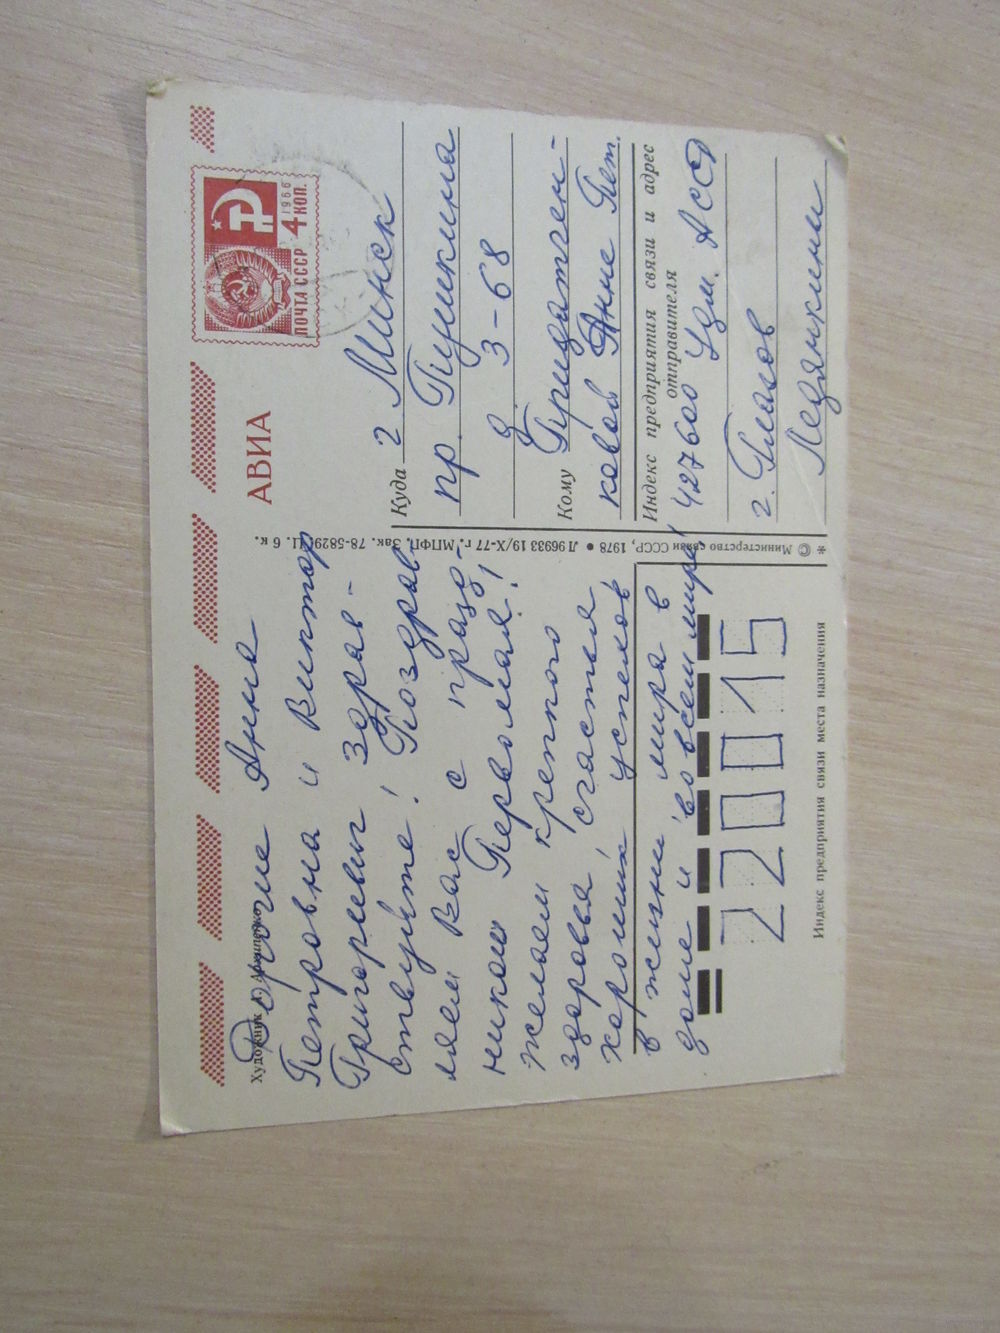 Художник А. Архипенко
Дорогие Анна
Петровна и Виктор
Григорьевич здрав-
ствуйте! Поздрав
ляем Вас с празд-
ником Первомая!
желаем крепкого
здоровья, счастья
хороших успехов
в жизни мира в
доме и во всем мире!
220015
Индекс предприятия связи места назначения
© Министерство связи СССР, 1978 • Л 96933 19/X-77 г. МППФ. Зак. 78-5829. Ц. 6 к.
АВИА
1966
4 КОП.
ПОЧТА СССР
Куда г Минск
пр. Пушкина
д 3-68
Кому Придатчен-
ковой Анне Пет.
Индекс предприятия связи и адрес
отправителя
427600 Удм. АССР
г. Глазов
Ледянкины